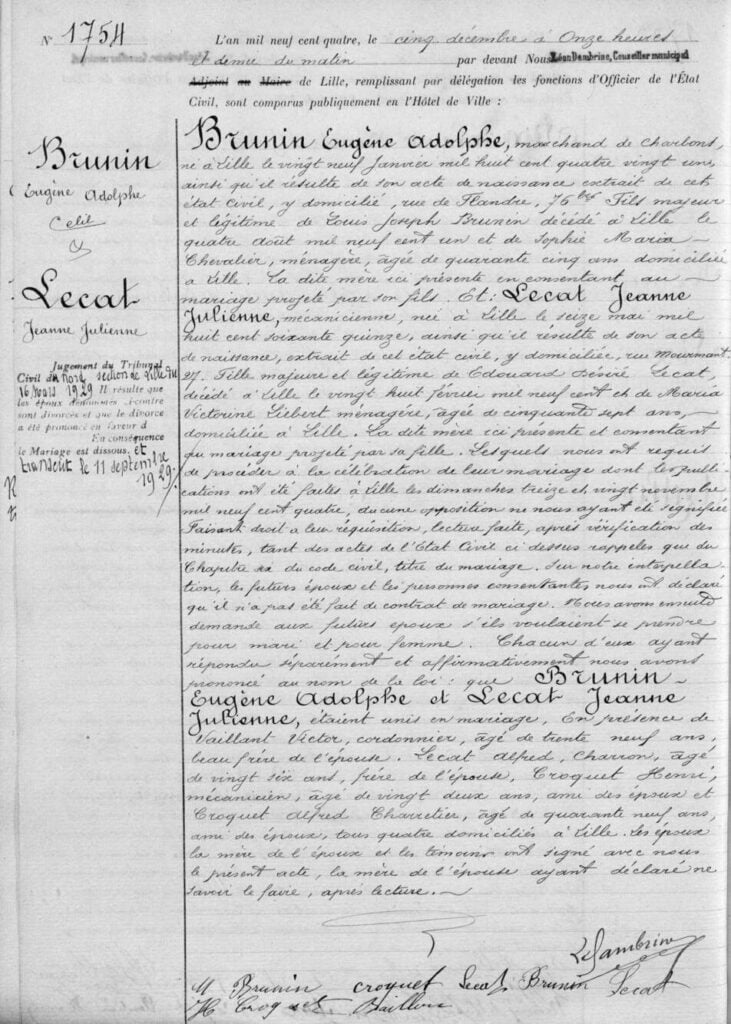 N° 1754
L'an mil neuf cent quatre, le cinq décembre à Onze heures
et demie du matin par devant Nous Léon Dambrine, Conseiller municipal
Adjoint au Maire de Lille, remplissant par délégation les fonctions d'Officier de l'État
Civil, sont comparus publiquement en l'Hôtel de Ville :
Brunin
Eugène Adolphe
Celib
&
Lecat
Jeanne Julienne
Jugement du Tribunal
Civil du Nord section de Lille du
16 Mars 1929 Il résulte que
les époux dénommés ci-contre
sont divorcés et que le divorce
a été prononcé en faveur d
En conséquence
le Mariage est dissous, et
transcrit le 11 septembre
1929.
Brunin Eugène Adolphe, marchand de Charbons,
né à Lille le vingt neuf Janvier mil huit cent quatre vingt un,
ainsi qu'il résulte de son acte de naissance extrait de cet
état Civil, y domicilié, rue de Flandre, 76 bis Fils majeur
et légitime de Louis Joseph Brunin décédé à Lille le
quatre août mil neuf cent un et de Sophie Maria
Chevalier, ménagère, âgée de quarante cinq ans domiciliée
à Lille. La dite mère ici présente en consentant au
mariage projeté par son fils. Et : Lecat Jeanne
Julienne, mécanicienne, née à Lille le seize mai mil
huit cent soixante quinze, ainsi qu'il résulte de son acte
de naissance, extrait de cet état civil, y domiciliée, rue Mourmant
27. Fille majeure et légitime de Edouard Désiré Lecat,
décédé à Lille le vingt huit février mil neuf cent et de Maria
Victorine Liébert ménagère, âgée de cinquante sept ans,
domiciliée à Lille. La dite mère ici présente et consentant
au mariage projeté par sa fille. Lesquels nous ont requis
de procéder à la célébration de leur mariage dont les publi-
cations ont été faites à Lille les dimanches treize et vingt novembre
mil neuf cent quatre, aucune opposition ne nous ayant été signifiée
Faisant droit à leur réquisition, lecture faite, après vérification des
minutes, tant des actes de l'Etat Civil ci dessus rappelés que du
Chapitre six du code civil, titre du mariage. Sur notre interpella-
tion, les futurs époux et les personnes consentantes, nous ont déclaré
qu'il n'a pas été fait de contrat de mariage. Nous avons ensuite
demandé aux futurs époux s'ils voulaient se prendre
pour mari et pour femme. Chacun d'eux ayant
répondu séparément et affirmativement nous avons
prononcé au nom de la loi : que Brunin
Eugène Adolphe et Lecat Jeanne
Julienne, étaient unis en mariage, En présence de
Vaillant Victor, cordonnier, âgé de trente neuf ans,
beau frère de l'épouse. Lecat Alfred, Charron, âgé
de vingt six ans, frère de l'épouse, Croquet Henri,
mécanicien, âgé de vingt deux ans, ami des époux et
Croquet Alfred Charretier, âgé de quarante neuf ans,
ami des époux, tous quatre domiciliés à Lille. Les époux
la mère de l'époux et les témoins ont signé avec nous
le présent acte, la mère de l'épouse ayant déclaré ne
savoir le faire, après lecture.
L. Dambrine
Brunin croquet Lecat Brunin Lecat
Croquet